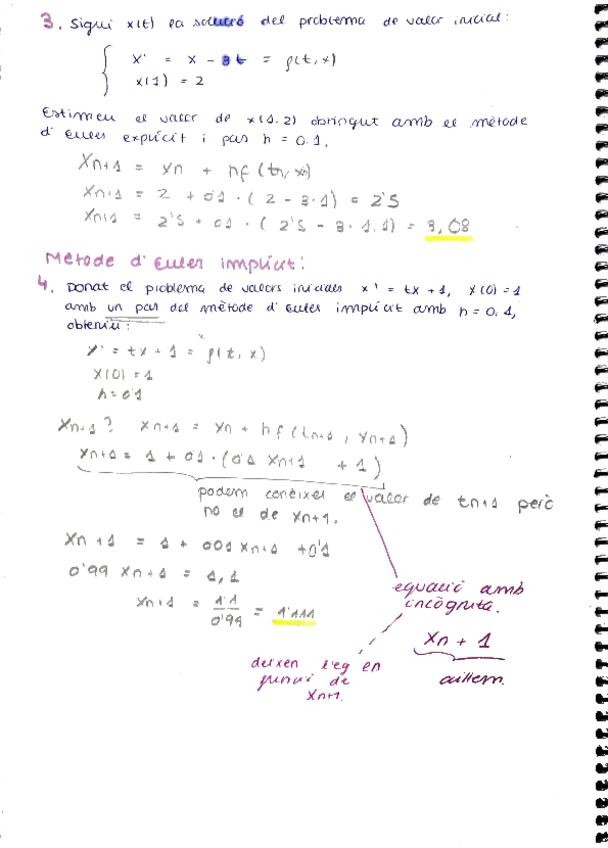 3. Sigui x(t) la solució del problema de valor inicial:
x' = x - 3t = f(t, x)
x(1) = 2
Estimeu el valor de x(1.2) obtingut amb el mètode
d'Euler explícit i pas h = 0.1.
Xn+1 = xn + hf(tn, xn)
Xn+1 = 2 + 0'1 · (2 - 3·1) = 2'5
Xn+1 = 2'5 + 0.1 · (2'5 - 3·1.1) = 3,08
Mètode d'Euler implícit:
4. Donat el problema de valors inicials x' = tx + 1, x(0) = 1
amb un pas del mètode d'Euler implícit amb h = 0,1,
obteniu:
x' = tx + 1 = f(t, x)
x(0) = 1
h = 0'1
Xn+1? Xn+1 = Xn + hf(tn+1, Xn+1)
Xn+1 = 1 + 0'1 · (0'1 Xn+1 + 1)
podem conèixer el valor de tn+1 però
no el de Xn+1.
Xn+1 = 1 + 0'01 Xn+1 + 0'1
0'99 Xn+1 = 1,1
Xn+1 = 1'1 / 0'99 = 1'111
equació amb
incògnita.
Xn + 1
aïllem.
deixen l'eq en
funció de
Xn+1.